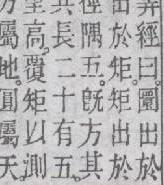 經曰。圜出於
出於矩。矩出於
徑隅五。旣方其
其長二十有五。
高。覆矩以測
方屬地。圓屬天。